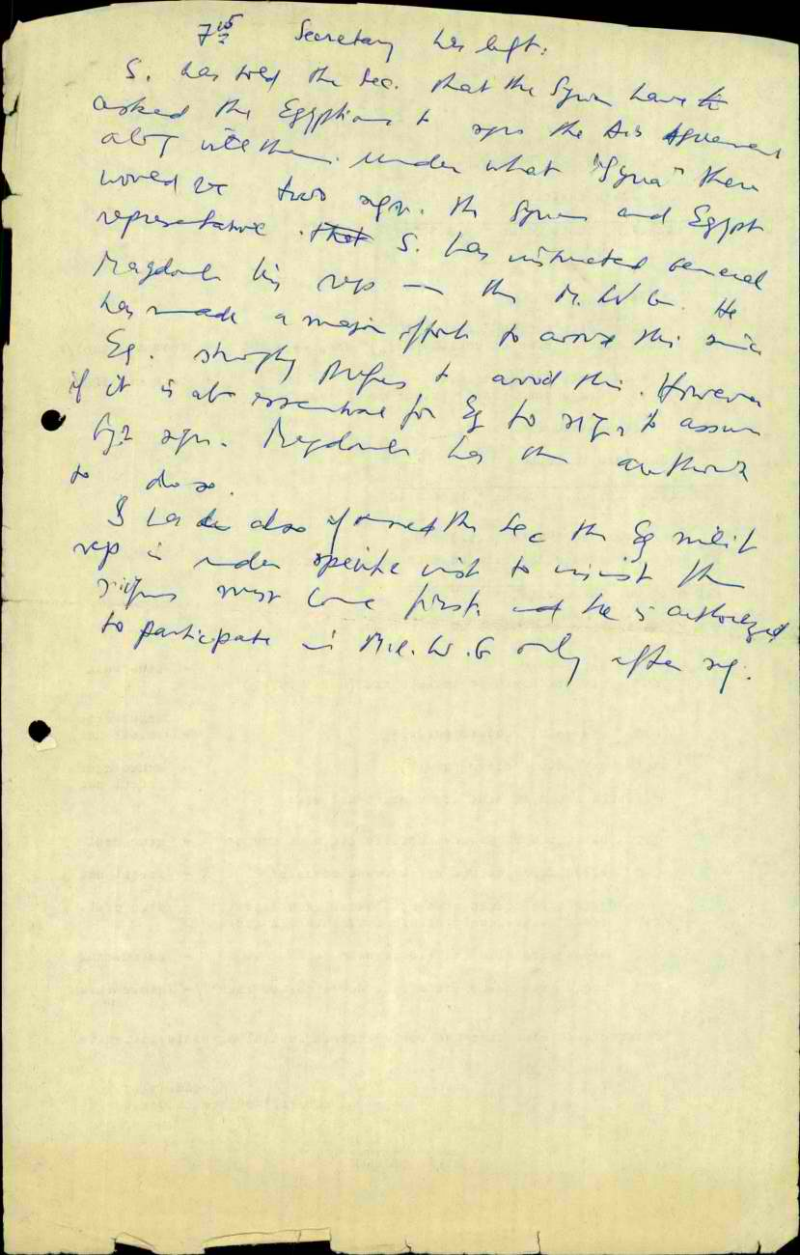 7 15 Secretary has left:
S. has told the Sec. that the Syrian have
asked the Egyptians to sign the Dis Agreement
also with them. under what "Syria" then
would be two sign. the Syrian and Egypt
representative. that S. has instructed General
Magdoub his rep in the M.W.G. He
has made a major effort to avoid this since
Eg. strongly prefers to avoid this. However
if it is abs essential for Eg to sign to assure
Syr sign. Magdoub has the authority
to do so.
S has also informed the Sec the Eg milit
rep is under specific inst to insist the
signing must come first. and he is authorized
to participate in Mil.W.G only after sig.